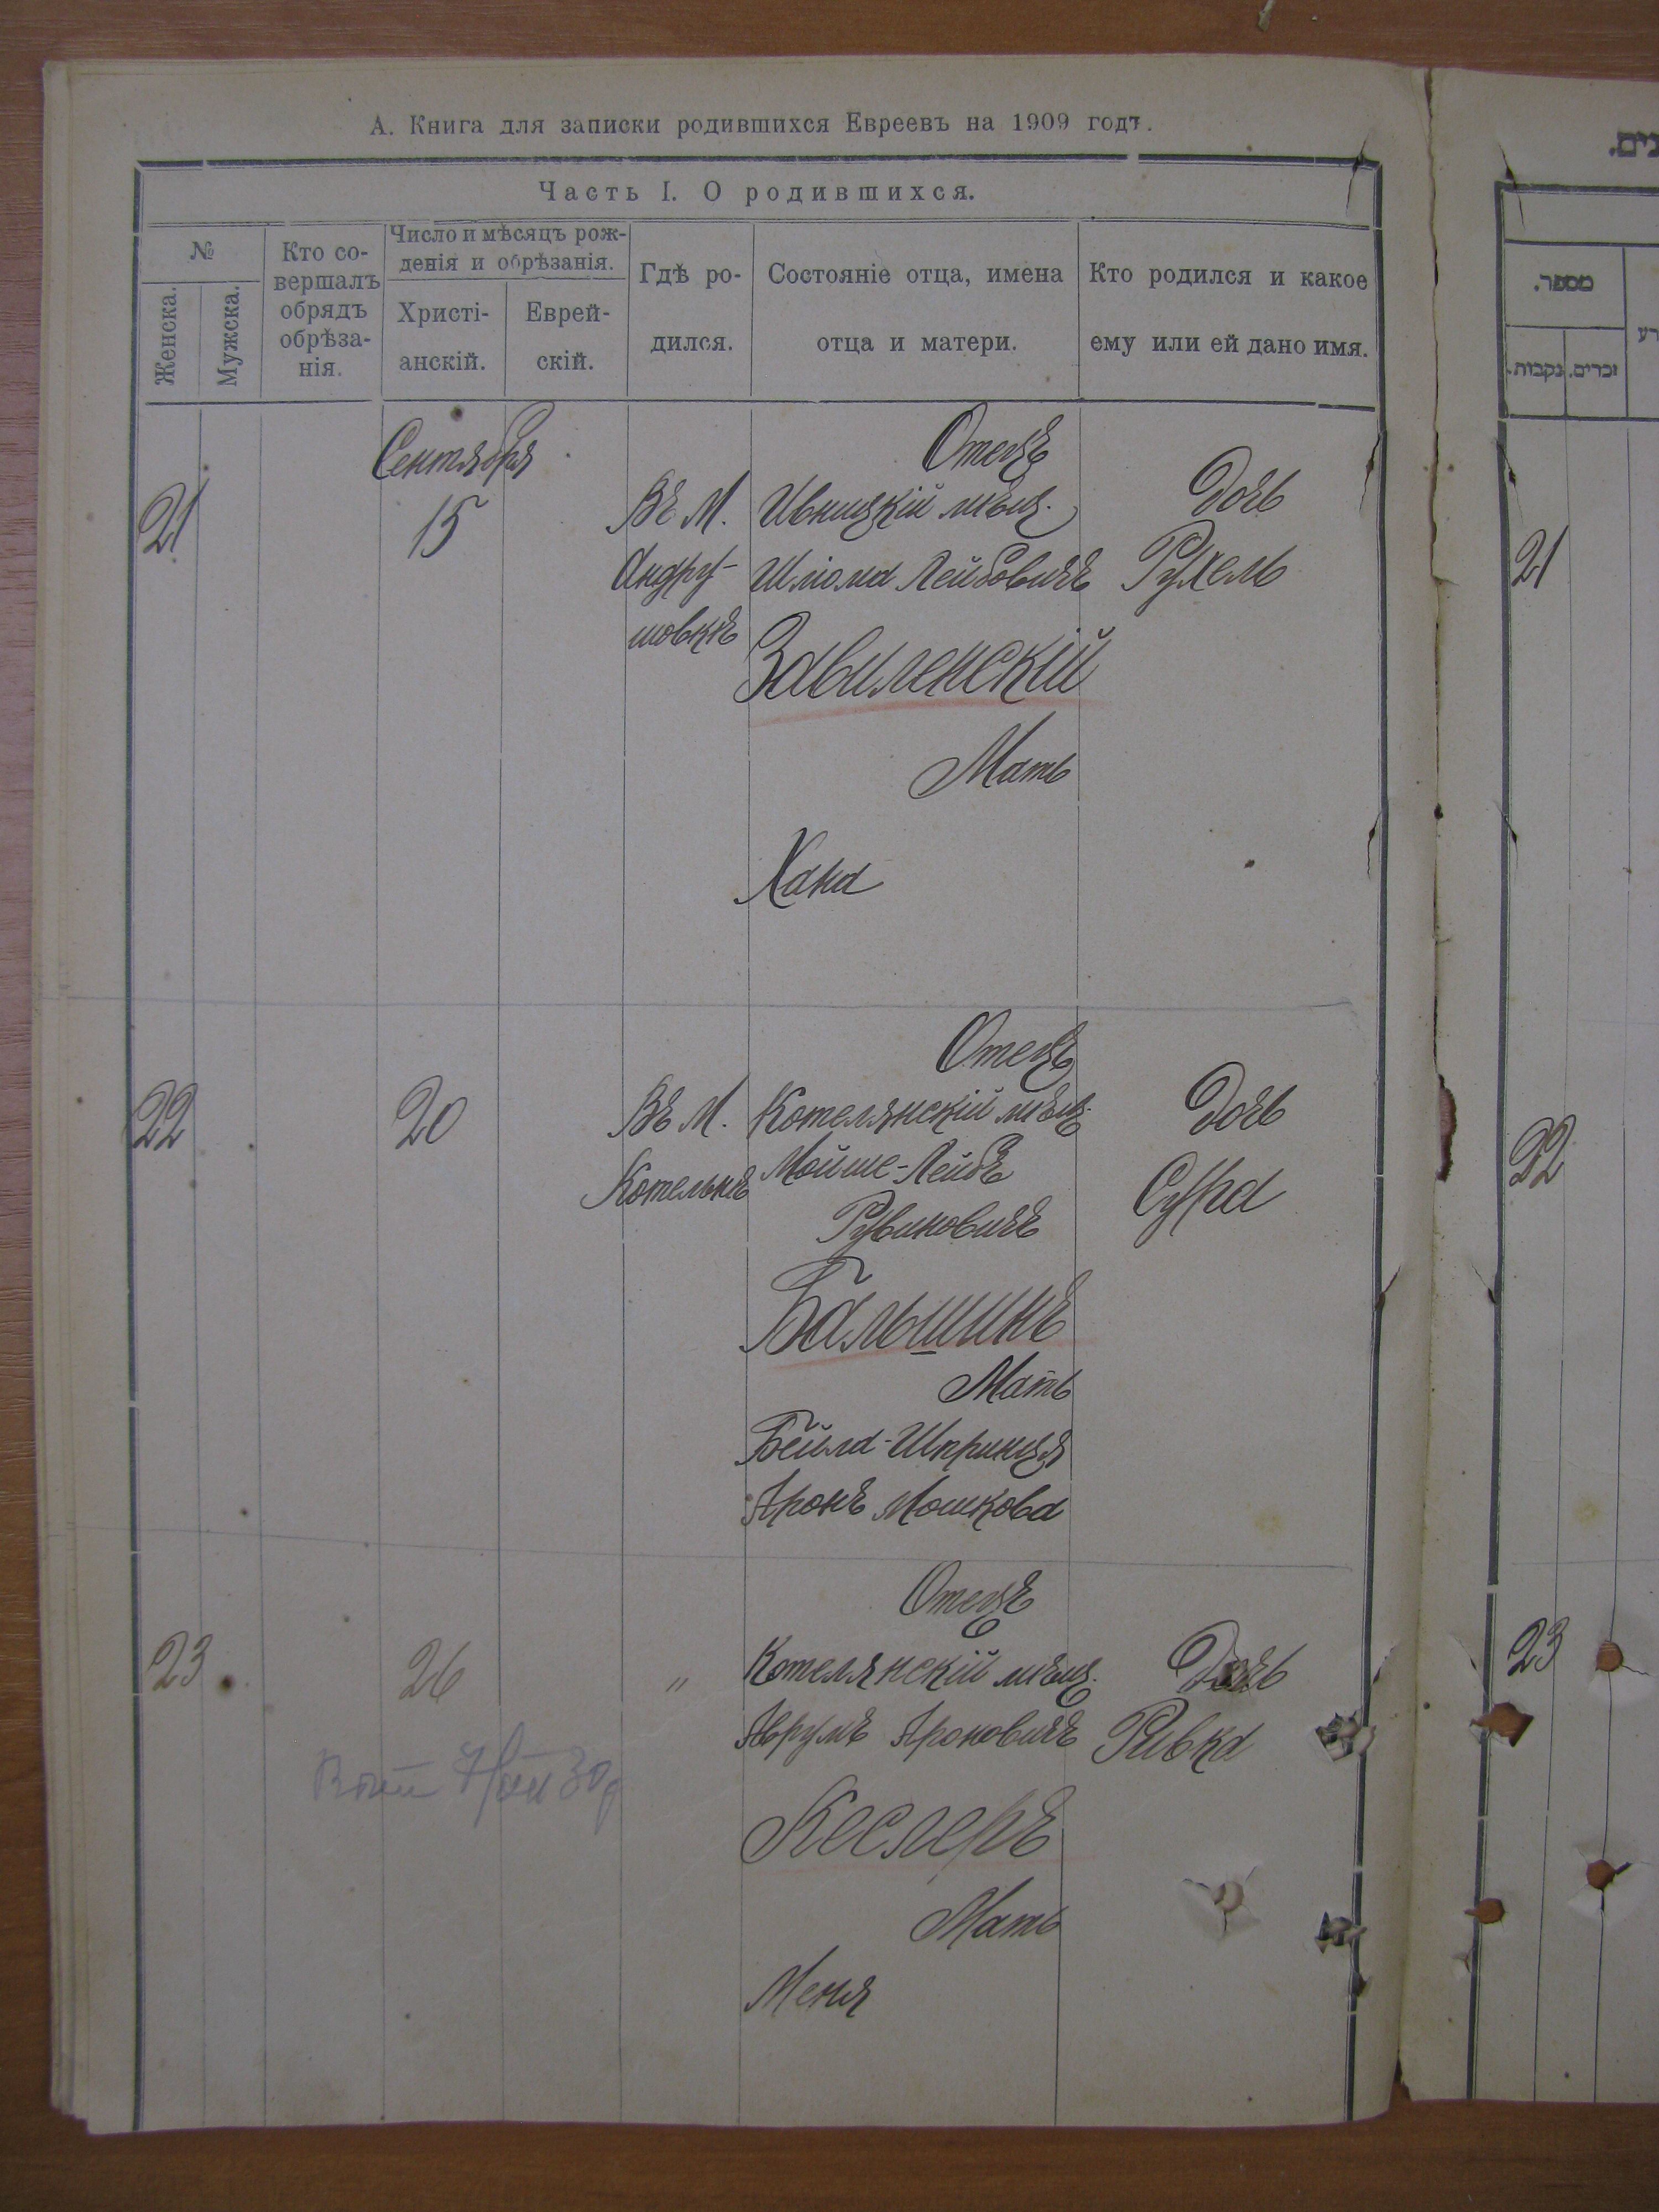 А. Книга для записки родившихся Евреевъ на 1909 годъ.
Часть I. О родившихся.
№
Женска.
Мужска.
Кто со-
вершалъ
обрядъ
обрѣза-
нія.
Число и мѣсяцъ рож-
денія и обрѣзанія.
Христі-
анскій.
Еврей-
скій.
Гдѣ ро-
дился.
Состояніе отца, имена
отца и матери.
Кто родился и какое
ему или ей дано имя.
21
Сентября
15
Въ М.
Андру-
шовкѣ
Отецъ
Ивницкій мѣщ.
Шлома Лейбовичъ
Завиленскій
Мать
Хана
Дочь
Рухель
22
20
Въ М.
Котельнѣ
Отецъ
Котелянскій мѣщ.
Мойше-Лейбъ
Рувиновичъ
Бальшинъ
Мать
Бейла-Шпринця
Аронъ Мошкова
Дочь
Сура
23
26
"
Отецъ
Котелянскій мѣщ.
Аврумъ Ароновичъ
Кеслеръ
Мать
Меня
Дочь
Ривка
מספר.
נקבות.
זכרים.
21
22
23